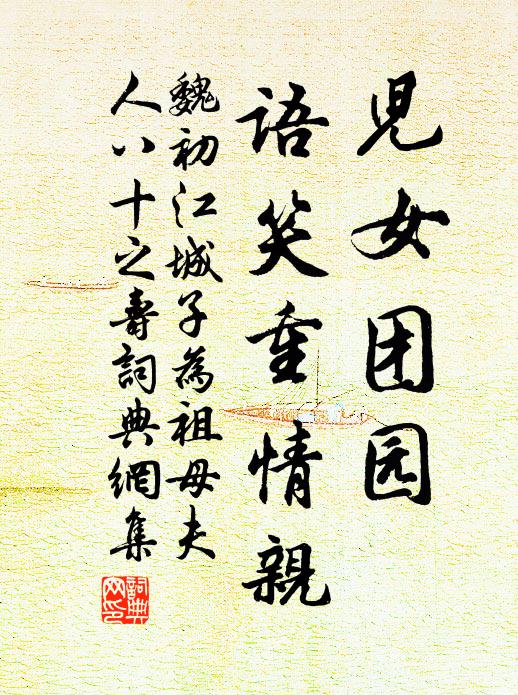 児女团园
語笑重情親
魏初江城子為祖母夫
人八十之壽詞典網集
詞典
网印